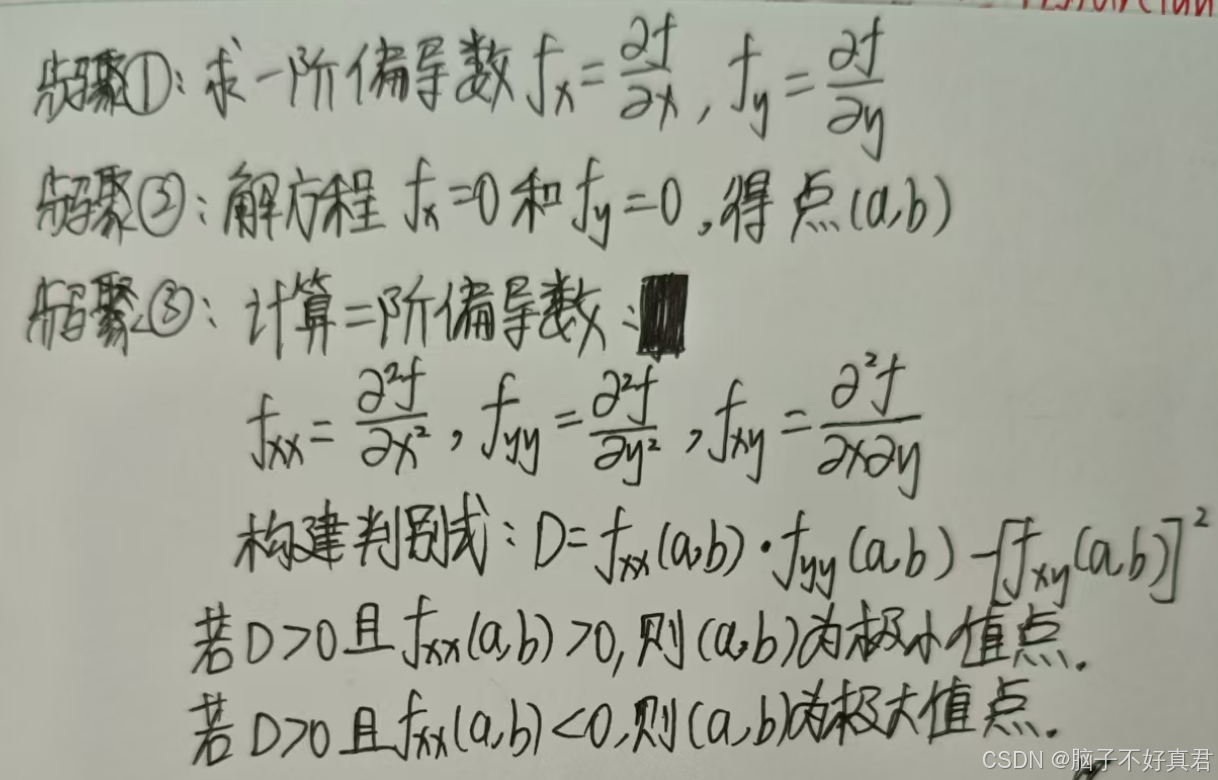 步骤①:求一阶偏导数 fx=∂f/∂x, fy=∂f/∂y
步骤②:解方程 fx=0 和 fy=0,得点(a,b)
步骤③:计算二阶偏导数:
fxx=∂²f/∂x², fyy=∂²f/∂y², fxy=∂²f/∂x∂y
构建判别式:D=fxx(a,b)·fyy(a,b)-[fxy(a,b)]²
若D>0且fxx(a,b)>0,则(a,b)为极小值点.
若D>0且fxx(a,b)<0,则(a,b)为极大值点.
CSDN @脑子不好真君